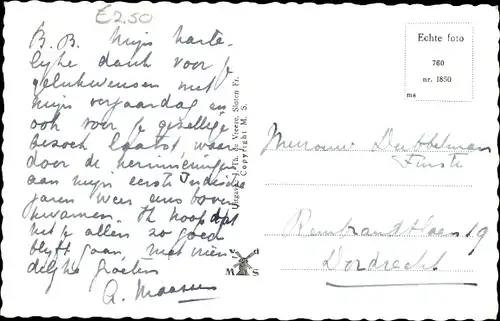 E2.50
B.B. Mijn harte-
lijke dank voor je
gelukwensen met
mijn verjaardag en
ook voor je gezellige
bezoek laatst, waar
door de herinneringen
aan mijn eerste Indische
jaren weer eens boven
kwamen. Ik hoop dat
het je allen zo goed
blijft gaan, met vrien
delijke groeten
A. Maassen
Uitgave J. Th. de Vreeze, Sloten Fr.
Copyright M. S.
M S
Echte foto
760
nr. 1850
ms
Mevrouw Dubbelman
Rembrandtlaan 19
Dordrecht